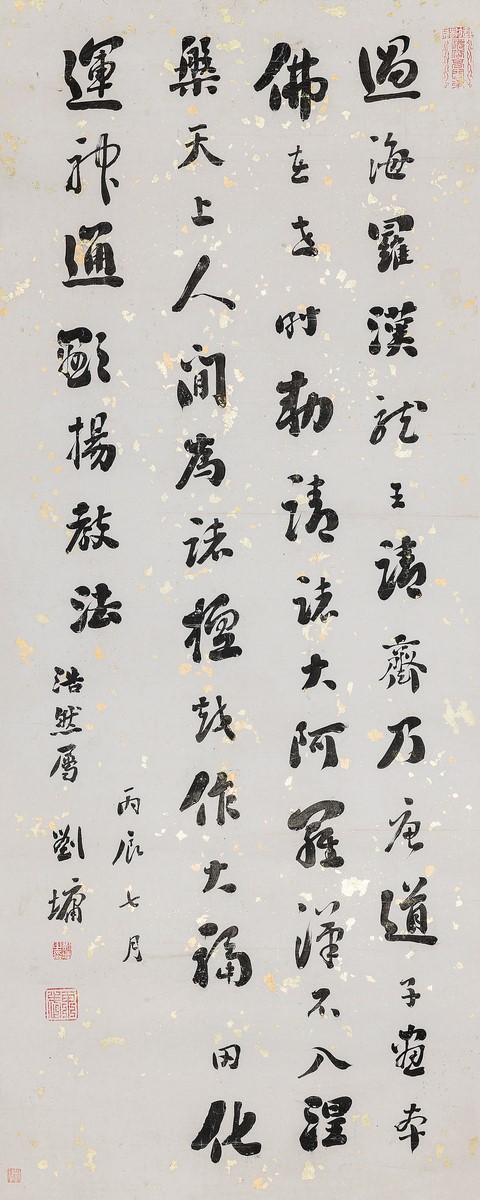 過海羅漢龍王請齊乃唐道子畫本
佛在世時勅請諸大阿羅漢不入涅
槃天上人間為諸檀越作大福田化
運神通顯揚教法
丙辰七月
浩然屬 劉墉